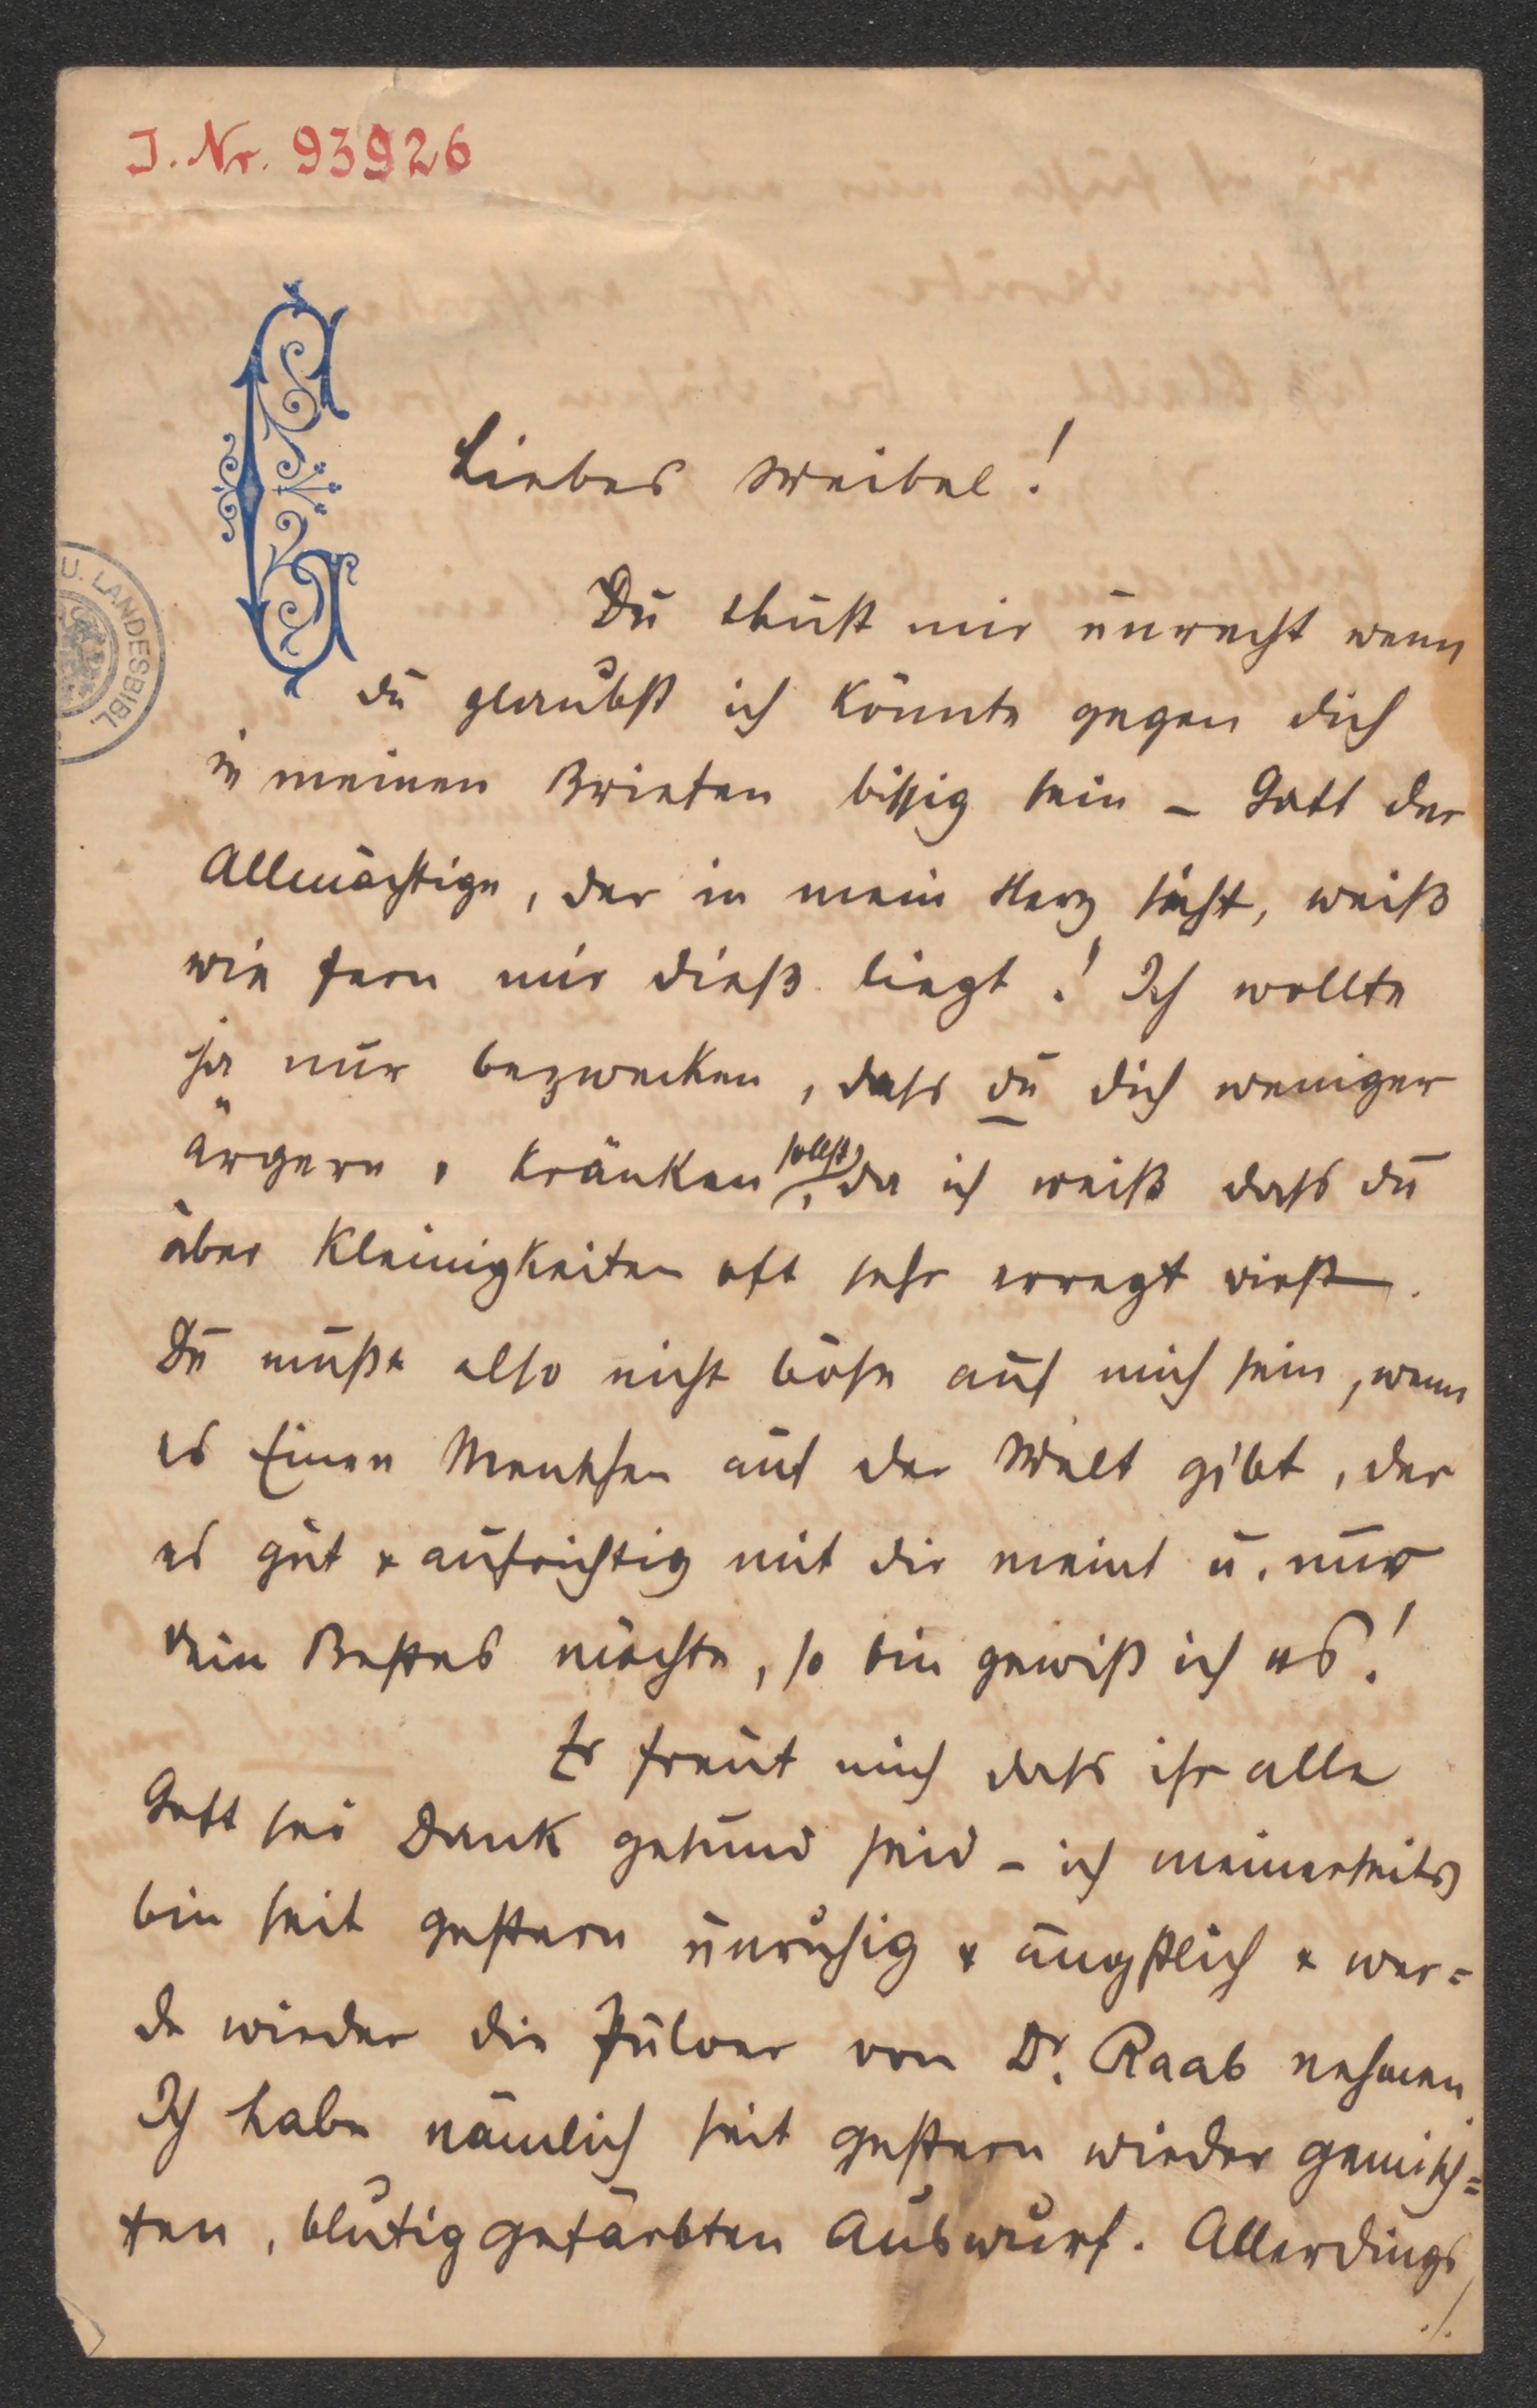 J. Nr. 93926
U. LANDESBIBL.
Liebes Weibel!
Du thust mir unrecht wenn
du glaubst ich könnte gegen dich
in meinen Briefen bissig sein – Gott der
Allmächtige, der in mein Herz sieht, weiß
wie fern mir dieß liegt! Ich wollte
ja nur bezwecken, dass du dich weniger
ärgern, kränken sollst, da ich weiß dass du
über Kleinigkeiten oft sehr erregt wirst.
Du mußt also nicht böse auf mich sein, wenn
es Einen Menschen auf der Welt gibt, der
es gut & aufrichtig mit dir meint u. nur
dein Bestes möchte, so bin gewiß ich es!
Es freut mich dass ihr alle
Gott sei Dank gesund seid – ich meinerseits
bin seit gestern unruhig & ängstlich & wer=
de wieder die Pulver von Dr. Raab nehmen.
Ich habe nämlich seit gestern wieder gemisch=
ten, blutig gefärbten Auswurf. Allerdings
./.